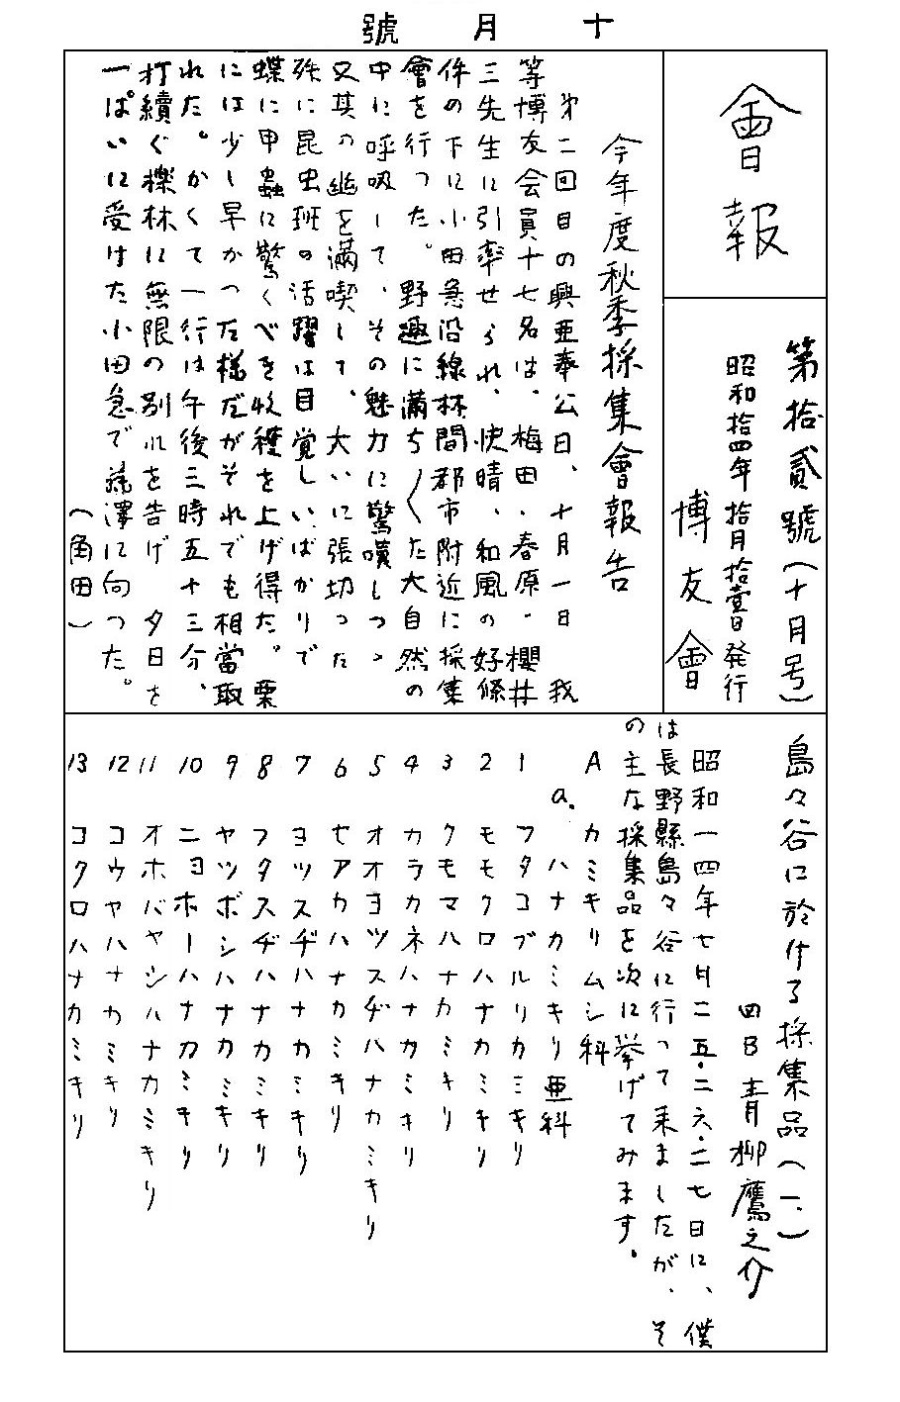 十月號
會報
第拾貳號(十月号)
昭和拾四年拾月拾壹日発行
博友會
今年度秋季採集會報告
第二回目の興亜奉公日、十月一日 我
等博友会員十七名は、梅田、春原、櫻井
三先生に引率せられ、快晴、和風の好條
件の下に小田急沿線林間都市附近に採集
會を行った。野趣に満ち〱た大自然の
中に呼吸して、その魅力に驚嘆しつゝ
又其の幽を満喫して、大いに張切った
殊に昆虫班の活躍は目覚しいばかりで
蝶に甲蟲に驚くべき收穫を上げ得た。栗
には少し早かった様だがそれでも相當取
れた。かくて一行は午後三時五十三分、
打續ぐ櫟林に無限の別れを告げ 夕日を
一ぱいに受けた小田急で藤澤に向った。
(角田)
島々谷に於ける採集品(一、)
四B 青柳鷹之介
昭和一四年七月二五・二六・二七日に、僕
は長野縣島々谷に行って来ましたが、そ
の主な採集品を次に挙げてみます。
A カミキリムシ科
a. ハナカミキリ亜科
1 フタコブルリカミキリ
2 モモクロハナカミキリ
3 クモマハナカミキリ
4 カラカネハナカミキリ
5 オオヨツスヂハナカミキリ
6 セアカハナカミキリ
7 ヨツスヂハナカミキリ
8 フタスヂハナカミキリ
9 ヤツボシハナカミキリ
10 ニヨホーハナカミキリ
11 オホバヤシハナカミキリ
12 コウヤハナカミキリ
13 コクロハナカミキリ